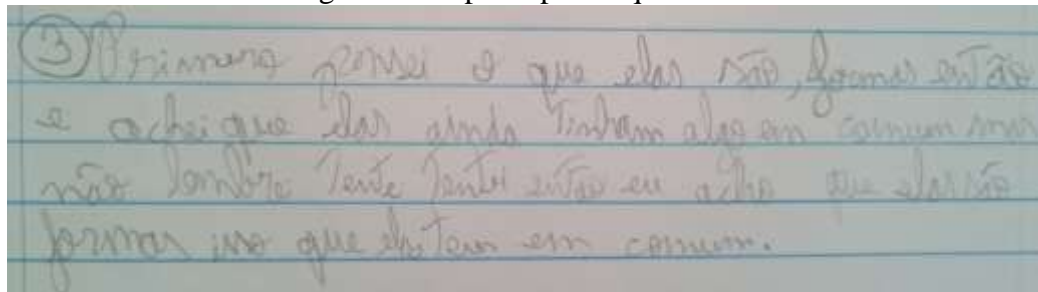 ③ Primeiro pensei o que elas são, formas então
e achei que elas ainda tinham algo em comum mas
não lembre Tente Tentei então eu acho que elas são
formas iso que elas tem em comum.